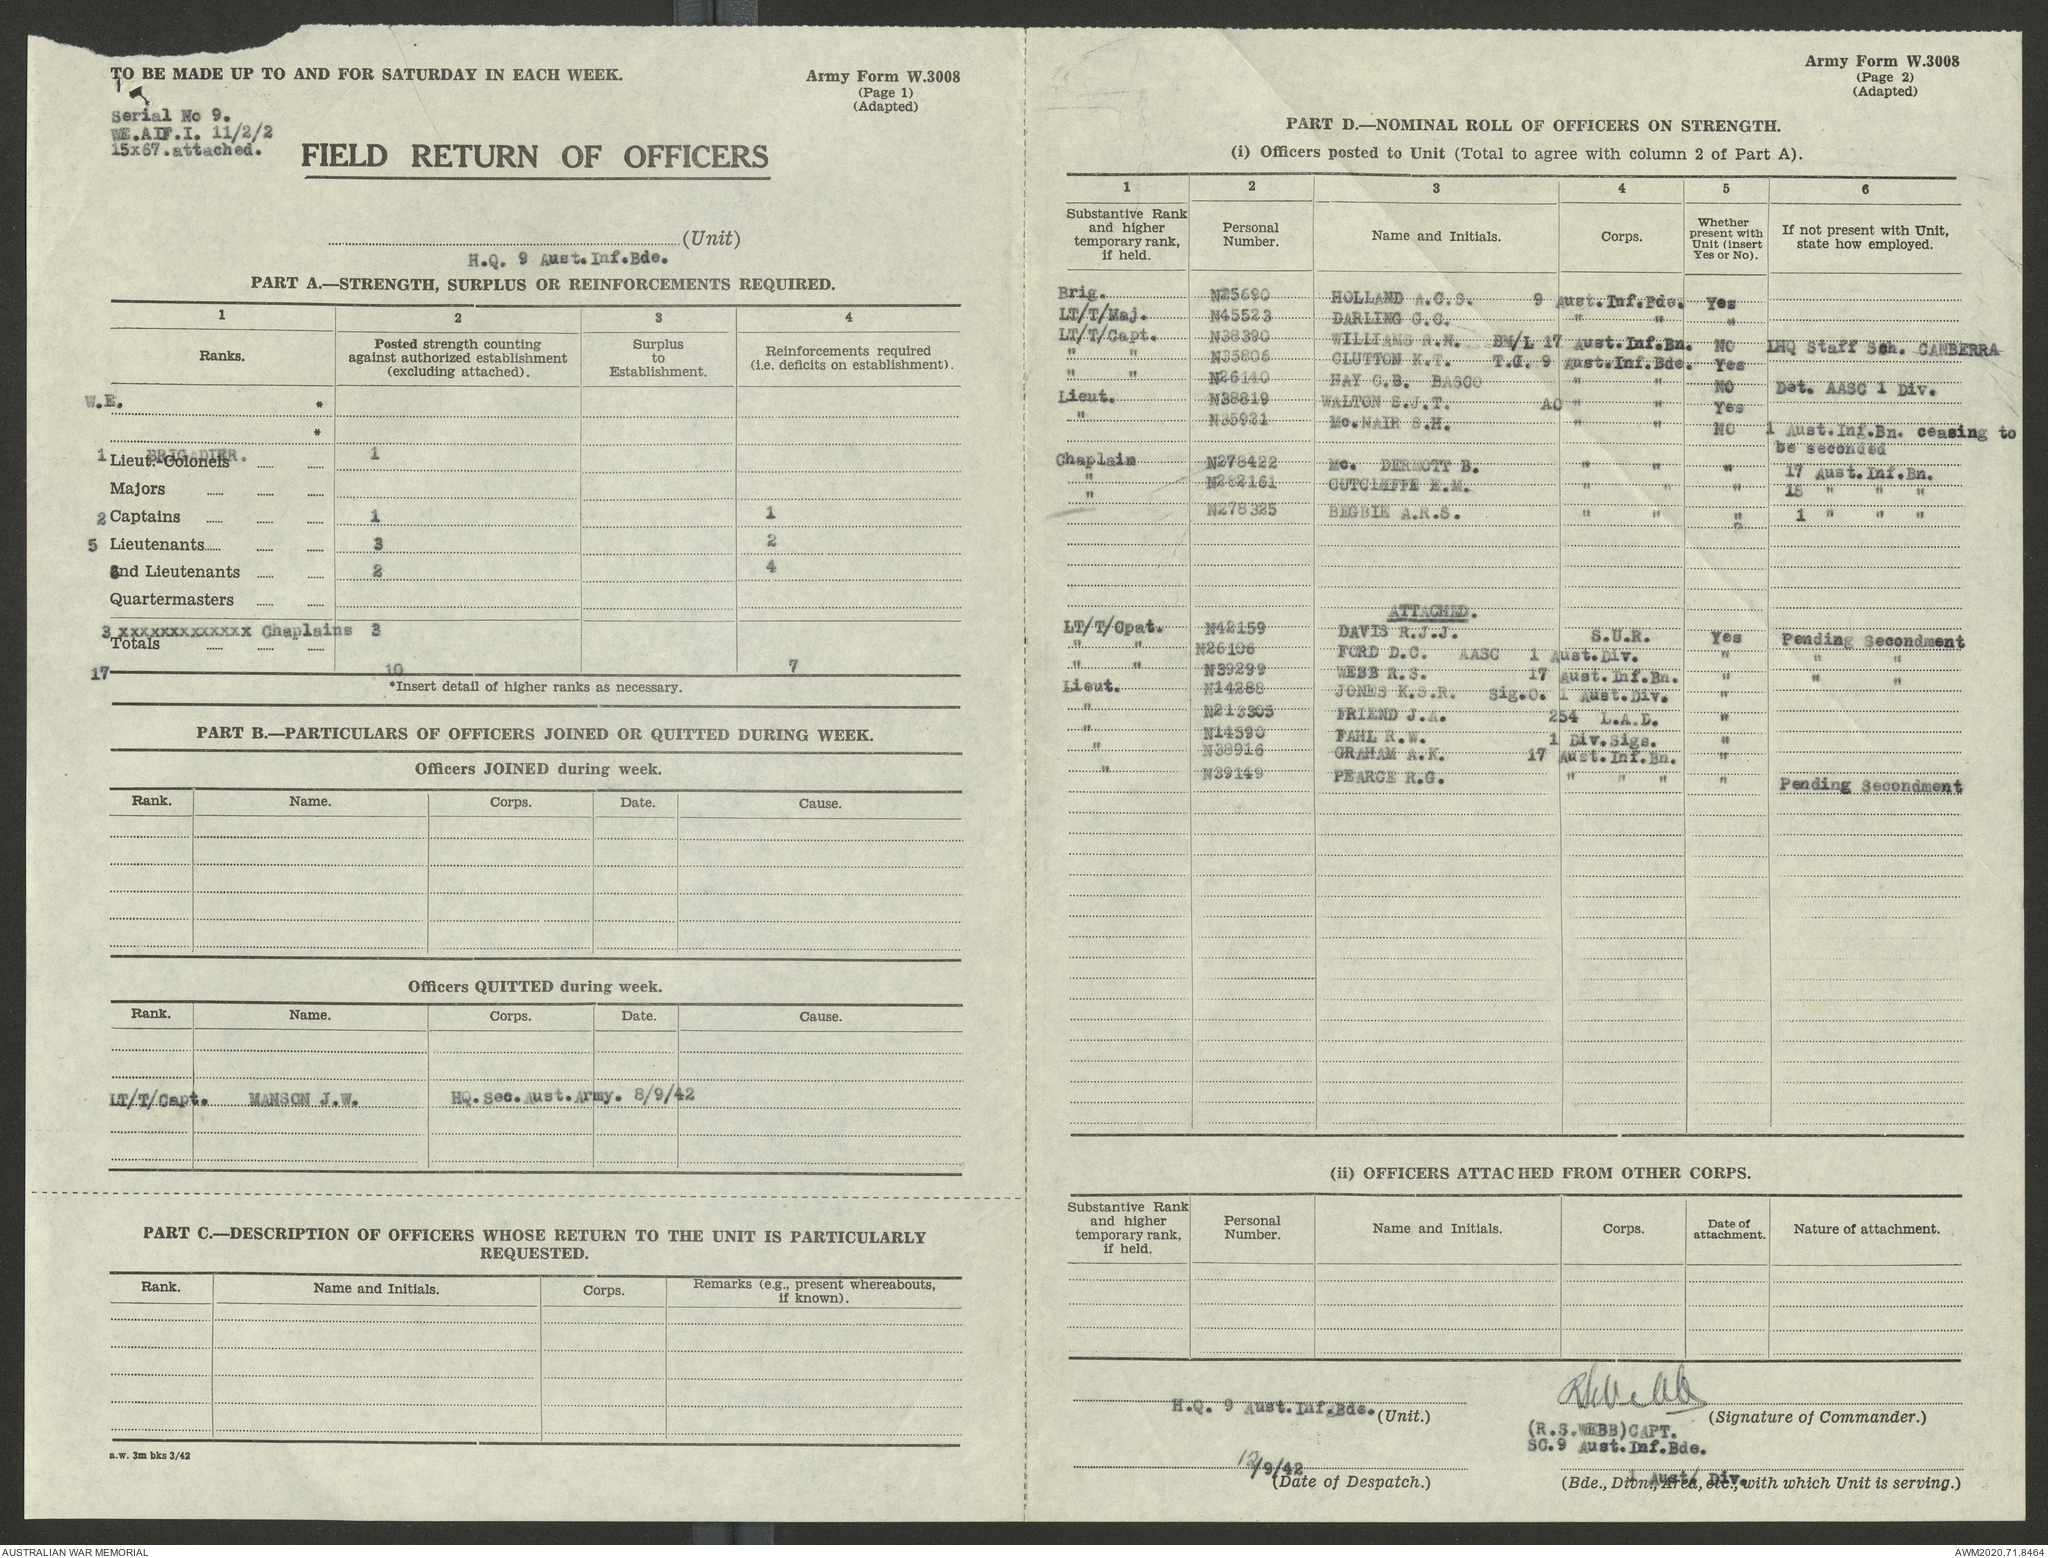 TO BE MADE UP TO AND FOR SATURDAY IN EACH WEEK.
Army Form W.3008
(Page 1)
(Adapted)
Serial No 9.
WE.AIF.I. 11/2/2
15x67.attached.
FIELD RETURN OF OFFICERS
(Unit)
H.Q. 9 Aust.Inf.Bde.
PART A.—STRENGTH, SURPLUS OR REINFORCEMENTS REQUIRED.
1 2 3 4
Ranks. Posted strength counting against authorized establishment (excluding attached). Surplus to Establishment. Reinforcements required (i.e. deficits on establishment).
W.E. *
*
1 BRIGADIER. Lieut.-Colonels 1
Majors
2 Captains 1 1
5 Lieutenants 3 2
2nd Lieutenants 2 4
Quartermasters
3 xxxxxxxxxxxxx Chaplains 3
Totals
17 10 7
*Insert detail of higher ranks as necessary.
PART B.—PARTICULARS OF OFFICERS JOINED OR QUITTED DURING WEEK.
Officers JOINED during week.
Rank. Name. Corps. Date. Cause.
Officers QUITTED during week.
Rank. Name. Corps. Date. Cause.
LT/T/Capt. MANSON J.W. HQ.Sec.Aust.Army. 8/9/42
PART C.—DESCRIPTION OF OFFICERS WHOSE RETURN TO THE UNIT IS PARTICULARLY
REQUESTED.
Rank. Name and Initials. Corps. Remarks (e.g., present whereabouts, if known).
a.w. 3m bks 3/42
Army Form W.3008
(Page 2)
(Adapted)
PART D.—NOMINAL ROLL OF OFFICERS ON STRENGTH.
(i) Officers posted to Unit (Total to agree with column 2 of Part A).
1 2 3 4 5 6
Substantive Rank and higher temporary rank, if held. Personal Number. Name and Initials. Corps. Whether present with Unit (insert Yes or No). If not present with Unit, state how employed.
Brig. N25690 HOLLAND A.C.S. 9 Aust.Inf.Bde. Yes
LT/T/Maj. N45523 DARLING G.C. " " "
LT/T/Capt. N38390 WILLIAMS R.N. BM/L 17 Aust.Inf.Bn. NO LHQ Staff Sch. CANBERRA
" " N35806 CLUTTON K.T. T.O. 9 Aust.Inf.Bde. Yes
" " N26140 HAY C.B. BASCO " " NO Det. AASC 1 Div.
Lieut. N38819 WALTON S.J.T. AO " " Yes
" N35921 Mc.NAIR S.H. " " NO 1 Aust.Ing.Bn. ceasing to
be seconded
Chaplain N278422 Mc. DERMOTT B. " " " 17 Aust.Inf.Bn.
" N282161 CUTCLIFFE E.M. " " " 18 " " "
" N278325 BEGBIE A.R.S. " " " 1 " " "
ATTACHED.
LT/T/Cpat. N42159 DAVIS R.J.J. S.U.R. Yes Pending Secondment
" " N26106 FORD D.C. AASC 1 Aust.Div. " " "
" " N39299 WEBB R.S. 17 Aust.Inf.Bn. " " "
Lieut. N14288 JONES K.S.R. Sig.O. 1 Aust.Div. "
" N213305 FRIEND J.A. 254 L.A.D. "
" N14590 FAHL R.W. 1 Div.Sigs. "
" N38916 GRAHAM A.K. 17 Aust.Inf.Bn. "
" N39149 PEARCE R.G. " " " " Pending Secondment
(ii) OFFICERS ATTACHED FROM OTHER CORPS.
Substantive Rank and higher temporary rank, if held. Personal Number. Name and Initials. Corps. Date of attachment. Nature of attachment.
H.Q. 9 Aust.Inf.Bde. (Unit.)
RSWebb
(Signature of Commander.)
(R.S.WEBB)CAPT.
SC.9 Aust.Inf.Bde.
12/9/42
(Date of Despatch.)
1 Aust/ Div.
(Bde., Divn., Area, etc., with which Unit is serving.)
AUSTRALIAN WAR MEMORIAL
AWM2020.71.8464